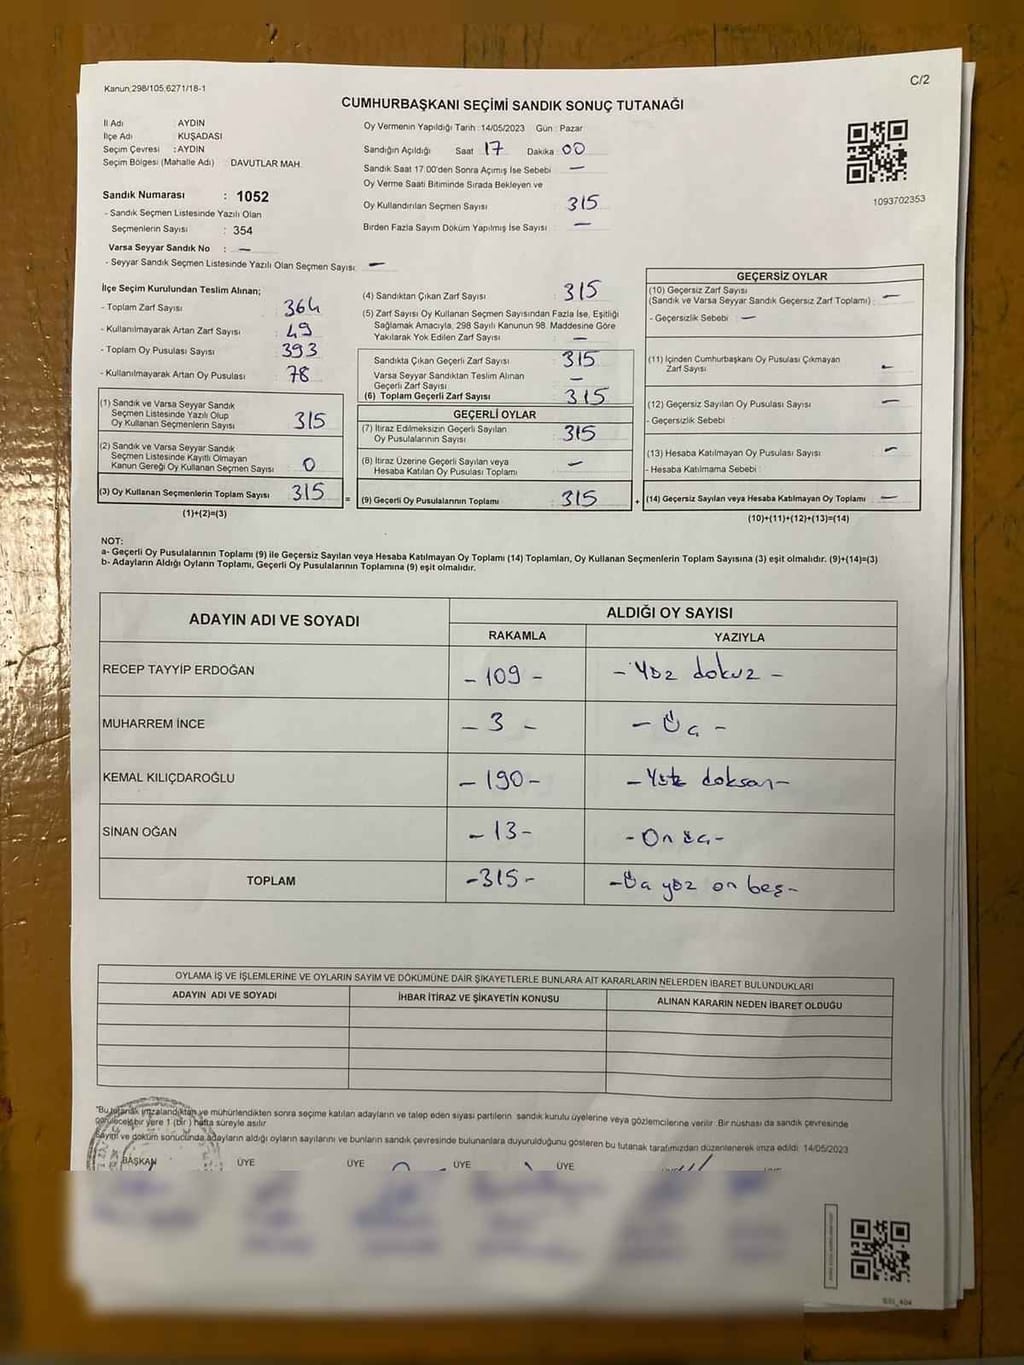 Kanun,298/105,6271/18-1
C/2
CUMHURBAŞKANI SEÇİMİ SANDIK SONUÇ TUTANAĞI
İl Adı AYDIN
İlçe Adı KUŞADASI
Seçim Çevresi : AYDIN
Seçim Bölgesi (Mahalle Adı) DAVUTLAR MAH.
Sandık Numarası : 1052
- Sandık Seçmen Listesinde Yazılı Olan
Seçmenlerin Sayısı : 354
Varsa Seyyar Sandık No : —
- Seyyar Sandık Seçmen Listesinde Yazılı Olan Seçmen Sayısı: —
Oy Vermenin Yapıldığı Tarih : 14/05/2023 Gün : Pazar
Sandığın Açıldığı Saat 17 Dakika 00
Sandık Saat 17:00'den Sonra Açımış İse Sebebi —
Oy Verme Saati Bitiminde Sırada Bekleyen ve
Oy Kullandırılan Seçmen Sayısı 315
Birden Fazla Sayım Döküm Yapılmış İse Sayısı —
1093702353
İlçe Seçim Kurulundan Teslim Alınan;
- Toplam Zarf Sayısı 364
- Kullanılmayarak Artan Zarf Sayısı 49
- Toplam Oy Pusulası Sayısı 393
- Kullanılmayarak Artan Oy Pusulası 78
(1) Sandık ve Varsa Seyyar Sandık
Seçmen Listesinde Yazılı Olup
Oy Kullanan Seçmenlerin Sayısı 315
(2) Sandık ve Varsa Seyyar Sandık
Seçmen Listesinde Kayıtlı Olmayan
Kanun Gereği Oy Kullanan Seçmen Sayısı 0
(3) Oy Kullanan Seçmenlerin Toplam Sayısı 315 =
(1)+(2)=(3)
(4) Sandıktan Çıkan Zarf Sayısı 315
(5) Zarf Sayısı Oy Kullanan Seçmen Sayısından Fazla İse, Eşitliği
Sağlamak Amacıyla, 298 Sayılı Kanunun 98. Maddesine Göre
Yakılarak Yok Edilen Zarf Sayısı —
Sandıkta Çıkan Geçerli Zarf Sayısı 315
Varsa Seyyar Sandıktan Teslim Alınan
Geçerli Zarf Sayısı —
(6) Toplam Geçerli Zarf Sayısı 315
GEÇERLİ OYLAR
(7) İtiraz Edilmeksizin Geçerli Sayılan
Oy Pusulalarının Sayısı 315
(8) İtiraz Üzerine Geçerli Sayılan veya
Hesaba Katılan Oy Pusulası Toplamı —
(9) Geçerli Oy Pusulalarının Toplamı 315 +
GEÇERSİZ OYLAR
(10) Geçersiz Zarf Sayısı
(Sandık ve Varsa Seyyar Sandık Geçersiz Zarf Toplamı) : —
- Geçersizlik Sebebi —
(11) İçinden Cumhurbaşkanı Oy Pusulası Çıkmayan
Zarf Sayısı —
(12) Geçersiz Sayılan Oy Pusulası Sayısı —
- Geçersizlik Sebebi
(13) Hesaba Katılmayan Oy Pusulası Sayısı —
- Hesaba Katılmama Sebebi
(14) Geçersiz Sayılan veya Hesaba Katılmayan Oy Toplamı —
(10)+(11)+(12)+(13)=(14)
NOT:
a- Geçerli Oy Pusulalarının Toplamı (9) ile Geçersiz Sayılan veya Hesaba Katılmayan Oy Toplamı (14) Toplamları, Oy Kullanan Seçmenlerin Toplam Sayısına (3) eşit olmalıdır. (9)+(14)=(3)
b- Adayların Aldığı Oyların Toplamı, Geçerli Oy Pusulalarının Toplamına (9) eşit olmalıdır.
ADAYIN ADI VE SOYADI ALDIĞI OY SAYISI
RAKAMLA YAZIYLA
RECEP TAYYİP ERDOĞAN - 109 - - Yüz dokuz -
MUHARREM İNCE - 3 - - Üç -
KEMAL KILIÇDAROĞLU - 190 - - Yüz doksan -
SİNAN OĞAN - 13 - - On üç -
TOPLAM - 315 - - Üç yüz on beş -
OYLAMA İŞ VE İŞLEMLERİNE VE OYLARIN SAYIM VE DÖKÜMÜNE DAİR ŞİKAYETLERLE BUNLARA AİT KARARLARIN NELERDEN İBARET BULUNDUKLARI
ADAYIN ADI VE SOYADI İHBAR İTİRAZ VE ŞİKAYETİN KONUSU ALINAN KARARIN NEDEN İBARET OLDUĞU
"Bu tutanak imzalandıktan ve mühürlendikten sonra seçime katılan adayların ve talep eden siyasi partilerin sandık kurulu üyelerine veya gözlemcilerine verilir. Bir nüshası da sandık çevresinde
görülecek bir yere 1 (bir) hafta süreyle asılır
Sayım ve döküm sonucunda adayların aldığı oyların sayılarını ve bunların sandık çevresinde bulunanlara duyurulduğunu gösteren bu tutanak tarafımızdan düzenlenerek imza edildi 14/05/2023
BAŞKAN ÜYE ÜYE ÜYE ÜYE